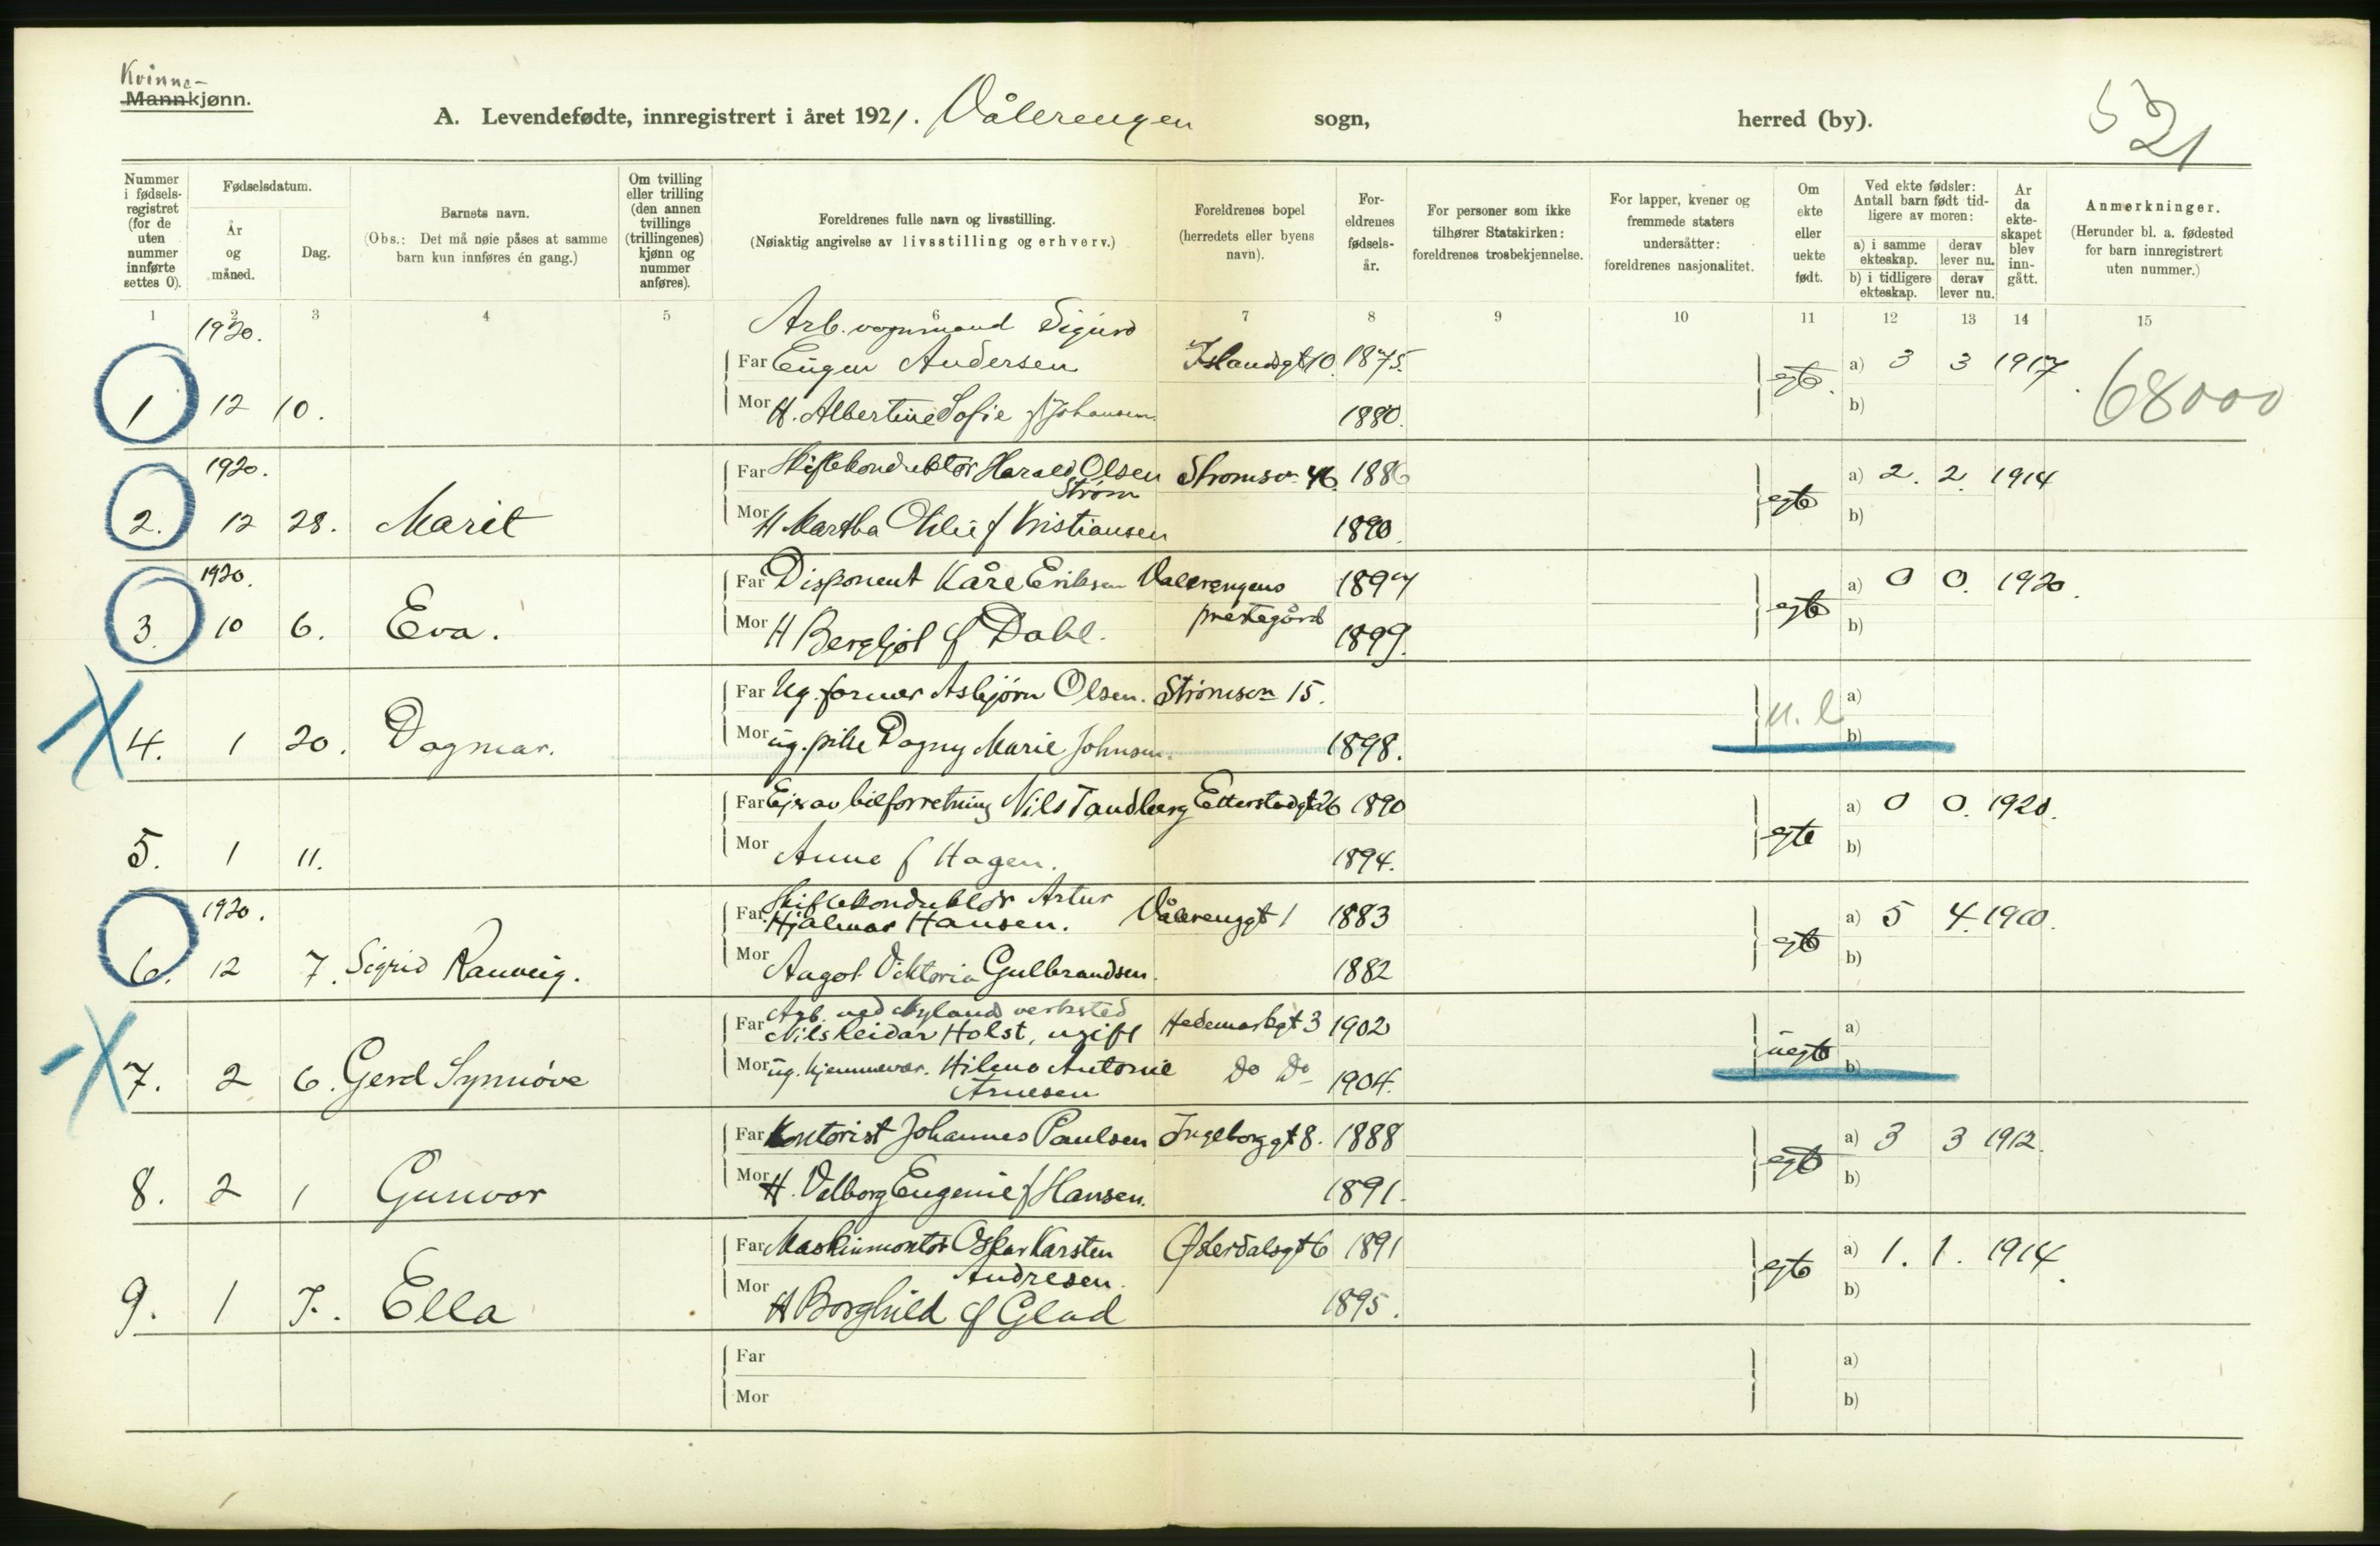 Kvinne-
Mannkjønn.
A. Levendefødte, innregistrert i året 1921. Vålerengen sogn, herred (by).
521
Nummer i fødsels-registret (for de uten nummer innførte settes 0).
Fødselsdatum.
År og måned.
Dag.
Barnets navn.
(Obs.: Det må nøie påses at samme barn kun innføres én gang.)
Om tvilling eller trilling (den annen tvillings (trillingenes) kjønn og nummer anføres).
Foreldrenes fulle navn og livsstilling.
(Nøiaktig angivelse av livsstilling og erhverv.)
Foreldrenes bopel (herredets eller byens navn).
For-eldrenes fødsels-år.
For personer som ikke tilhører Statskirken: foreldrenes trosbekjennelse.
For lapper, kvener og fremmede staters undersåtter: foreldrenes nasjonalitet.
Om ekte eller uekte født.
Ved ekte fødsler: Antall barn født tid-ligere av moren:
a) i samme ekteskap.
derav lever nu.
b) i tidligere ekteskap.
derav lever nu.
Ar da ekte-skapet blev inn-gått.
Anmerkninger.
(Herunder bl. a. fødested for barn innregistrert uten nummer.)
1 2 3 4 5 6 7 8 9 10 11 12 13 14 15
1920. Arb. vognmand Sigurd
Far Eugen Andersen Islandsgt 10 1875. egte. a) 3 3 1917
1 12 10. Mor H. Albertine Sofie f Johansen 1880. b)
68000
1920. Far Skiftekonduktør Harald Olsen Strømsv. 46. 1886 egte a) 2. 2. 1914
Strøm
2. 12 28. Marit Mor H Martha f Kristiansen 1890. b)
1920. Far Disponent Kåre Eriksen Vålerengens 1897 egte a) 0 0. 1920.
prestegård
3. 10 6. Eva. Mor H Bergljot f Dahl. 1899. b)
Far Ug. former Asbjørn Olsen. Strømsvn 15. u. e a)
4. 1 20. Dagmar. Mor ug. pike Dagny Marie Johnsen. 1898. b)
Far Ejer av bilforretning Nils Tandberg Etterstadgt 26 1890 egte a) 0 0. 1920.
5. 1 11. Mor Anna f Hagen. 1894. b)
1920. Skiftekonduktør Artur
Far Hjalmar Hansen. Vålerenggt 1 1883 egte a) 5 4. 1910.
6. 12 7. Sigrid Ranveig. Mor Aagot Viktoria Gulbrandsen. 1882 b)
Arb. ved Nylands verksted
Far Nils Reidar Holst, ugift Hedemarkgt 3 1902 uegte a)
7. 2 6. Gerd Synnøve Mor ug. hjemmevær. Hilma Antonie Do Do 1904. b)
Arnesen
Far Kontorist Johannes Paulsen Ingeborggt 8. 1888 egte a) 3 3 1912.
8. 2 1 Gunvor Mor H. Valborg Eugenie f Hansen. 1891. b)
Far Maskinmontør Oskar Karsten Østerdalsgt 6 1891 egte a) 1. 1. 1914.
Andresen.
9. 1 7. Ella Mor H Borghild f Glad 1895. b)
Far a)
Mor b)